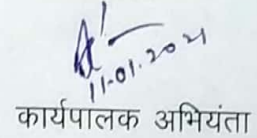 11.01.2021
कार्यपालक अभियंता